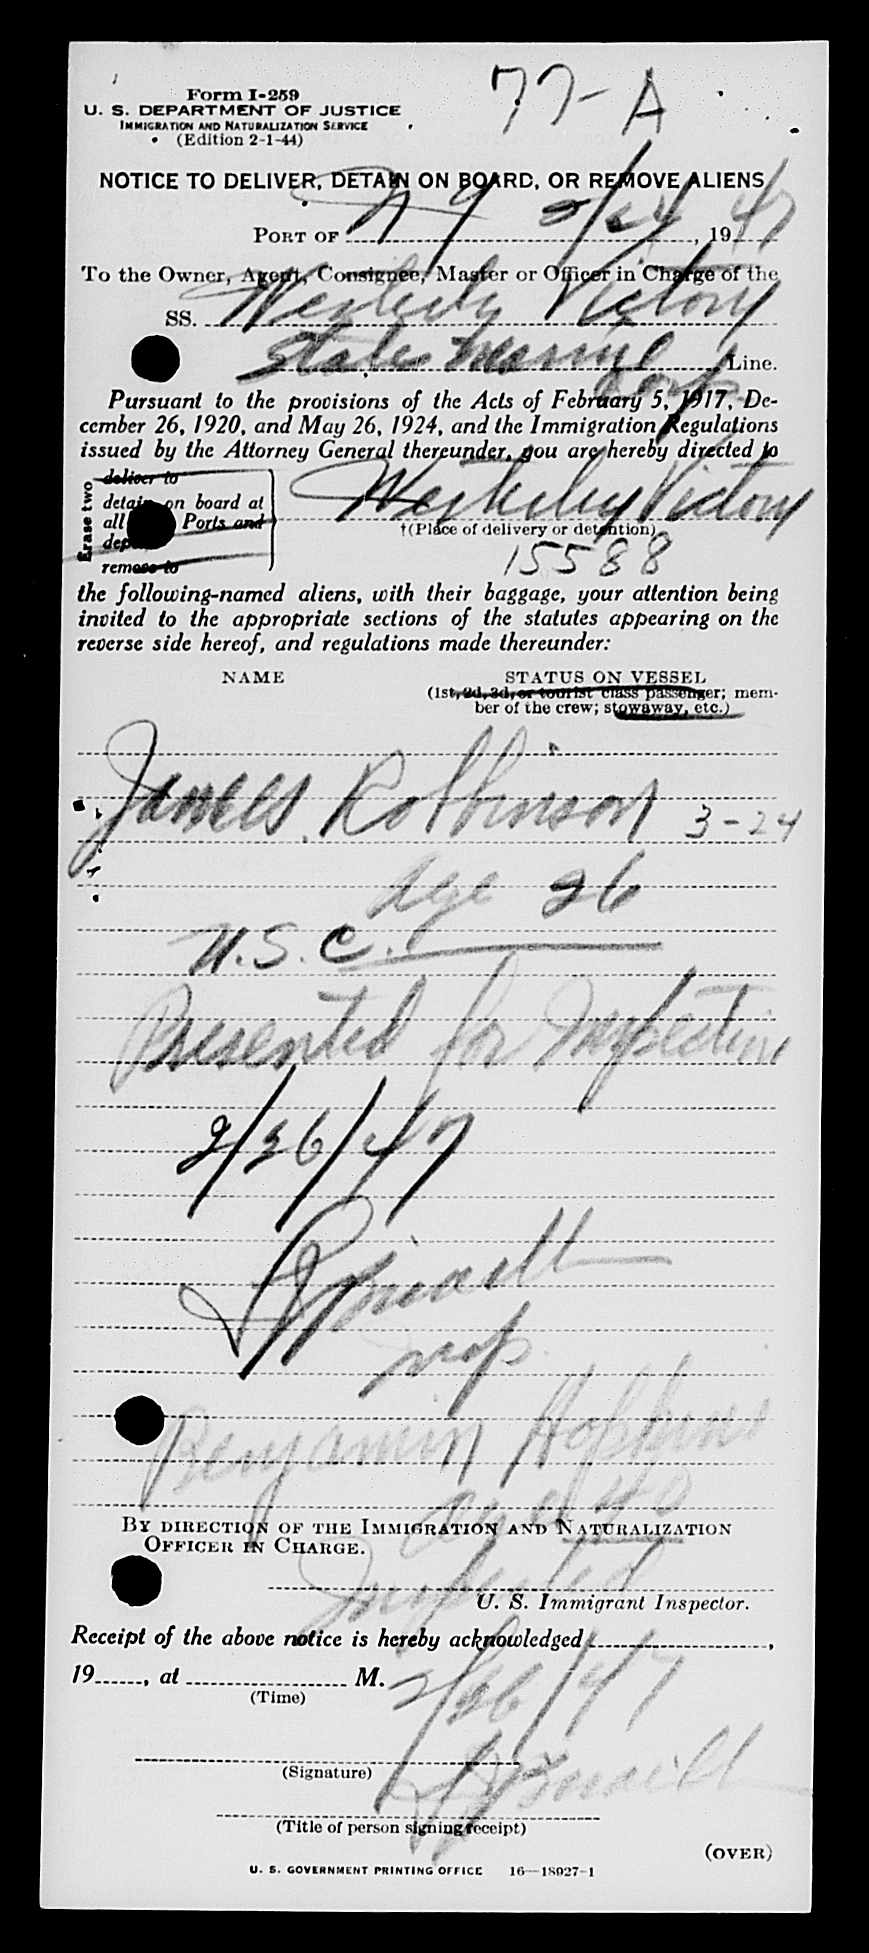 Form I-259
77-A
U. S. DEPARTMENT OF JUSTICE
IMMIGRATION AND NATURALIZATION SERVICE
(Edition 2-1-44)
NOTICE TO DELIVER, DETAIN ON BOARD, OR REMOVE ALIENS
PORT OF N Y 2/24, 1947
To the Owner, Agent, Consignee, Master or Officer in Charge of the
SS. Westerly Victory
States Marine Line.
Corp.
Pursuant to the provisions of the Acts of February 5, 1917, De-
cember 26, 1920, and May 26, 1924, and the Immigration Regulations
issued by the Attorney General thereunder, you are hereby directed to
Erase two
deliver to
detain on board at
all Ports and
remove to
Westerly Victory
†(Place of delivery or detention)
15588
the following-named aliens, with their baggage, your attention being
invited to the appropriate sections of the statutes appearing on the
reverse side hereof, and regulations made thereunder:
NAME STATUS ON VESSEL
(1st, 2d, 3d, or tourist class passenger; mem-
ber of the crew; stowaway, etc.)
James Robbinson 3-24
age 26
U.S.C.
Presented for Inspection
2/26/47
Benjamin Hopkins
age 40
BY DIRECTION OF THE IMMIGRATION AND NATURALIZATION
OFFICER IN CHARGE.
Inspected
U. S. Immigrant Inspector.
Receipt of the above notice is hereby acknowledged
19......, at M.
2/26/47
(Time)
(Signature)
(Title of person signing receipt)
(OVER)
U. S. GOVERNMENT PRINTING OFFICE 16—18027-1